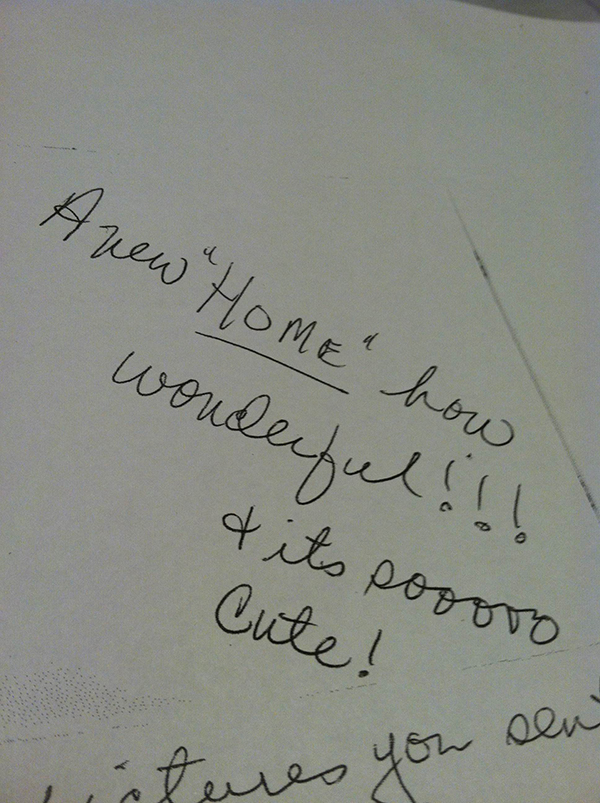 A new "HOME" how
wonderful!!!
& its sooooo
Cute!
pictures you sent